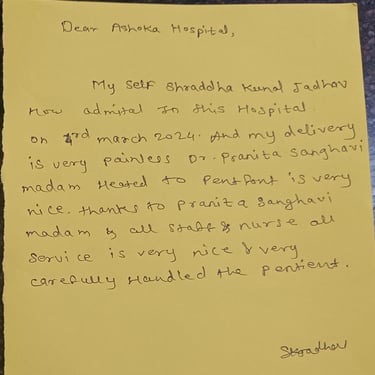 Dear Ashoka Hospital,
My Self Shraddha Kunal Jadhav
How admital In this Hospital.
on 3rd march 2024. And my delivery
is very painless Dr. Pranita Sanghavi
madam Heated to Pentfont is very
nice. thanks to Pranita Sanghavi
madam & all staff & nurse all
service is very nice & very
carefully Handled the Pentient.